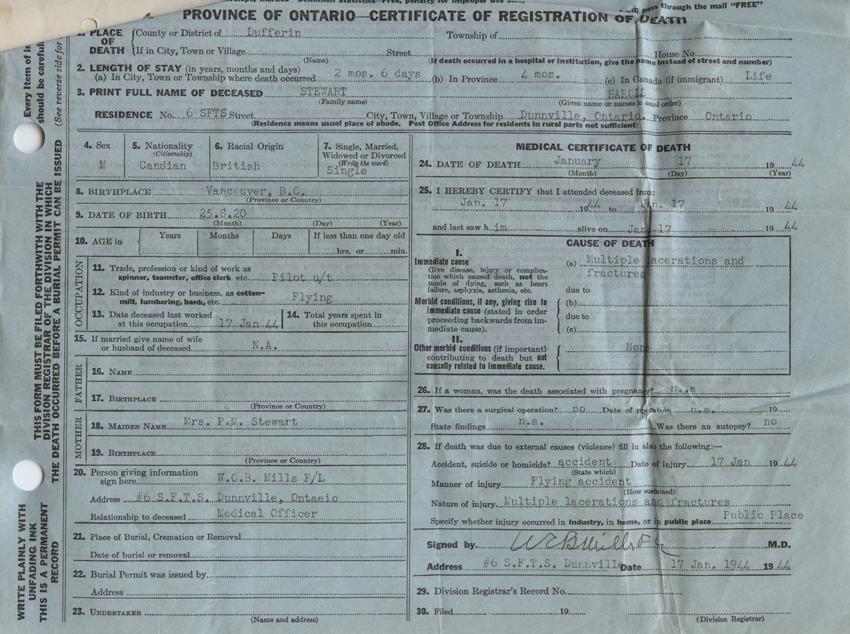 pass through the mail "FREE"
PROVINCE OF ONTARIO—CERTIFICATE OF REGISTRATION OF DEATH
1. PLACE OF DEATH
County or District of Dufferin Township of
If in City, Town or Village Street House No.
(Name) (If death occurred in a hospital or institution, give the name instead of street and number)
2. LENGTH OF STAY (in years, months and days)
(a) In City, Town or Township where death occurred 2 mos. 6 days (b) In Province 4 mos. (c) In Canada (if immigrant) Life
3. PRINT FULL NAME OF DECEASED STEWART
(Family name) (Given name or names in usual order)
RESIDENCE No. 6 SFTS Street City, Town, Village or Township Dunnville, Ontario. Province Ontario
(Residence means usual place of abode. Post Office Address for residents in rural parts not sufficient)
4. Sex
M
5. Nationality
(Citizenship)
Candian
6. Racial Origin
British
7. Single, Married, Widowed or Divorced
(Write the word)
Single
8. BIRTHPLACE Vancouver, B.C.
(Province or Country)
9. DATE OF BIRTH 25.8.20
(Month) (Day) (Year)
10. AGE in Years Months Days If less than one day old
hrs. or min.
OCCUPATION
11. Trade, profession or kind of work as
spinner, teamster, office clerk etc. Pilot u/t
12. Kind of industry or business, as cotton-
mill, lumbering, bank, etc. Flying
13. Date deceased last worked
at this occupation 17 Jan 44
14. Total years spent in
this occupation
15. If married give name of wife
or husband of deceased N.A.
FATHER
16. NAME
17. BIRTHPLACE
(Province or Country)
MOTHER
18. MAIDEN NAME Mrs. P.M. Stewart
19. BIRTHPLACE
(Province or Country)
20. Person giving information
sign here W.C.B. Mills F/L
Address #6 S.F.T.S. Dunnville, Ontaeio
Relationship to deceased Medical Officer
21. Place of Burial, Cremation or Removal
Date of burial or removal
22. Burial Permit was issued by
Address
23. UNDERTAKER
(Name and address)
MEDICAL CERTIFICATE OF DEATH
24. DATE OF DEATH January 17 1944
(Month) (Day) (Year)
25. I HEREBY CERTIFY that I attended deceased from:
Jan. 17 1944 to Jan. 17 1944
and last saw him alive on Jan 17 1944
CAUSE OF DEATH
I.
Immediate cause
Give disease, injury or complica-
tion which caused death, not the
mode of dying, such as heart
failure, asphyxia, asthenia, etc.
(a) Multiple lacerations and
fractures
due to
Morbid conditions, if any, giving rise to
immediate cause (stated in order
proceeding backwards from im-
mediate cause).
(b)
due to
(c)
II.
Other morbid conditions (if important)
contributing to death but not
causally related to immediate cause.
26. If a woman, was the death associated with pregnancy?
27. Was there a surgical operation? no Date of operation n.a. 19
State findings n.a. Was there an autopsy? no
28. If death was due to external causes (violence) fill in also the following:—
Accident, suicide or homicide? accident Date of injury 17 Jan 1944
(State which)
Manner of injury Flying accident
(How sustained)
Nature of injury Multiple lacerations and fractures
Specify whether injury occurred in industry, in home, or in public place Public Place
Signed by WCB Mills F/L M.D.
Address #6 S.F.T.S. Dunnville Date 17 Jan. 1944 1944
29. Division Registrar's Record No.
30. Filed 19
(Division Registrar)
Every item of in
should be careful
(See reverse side for
THIS FORM MUST BE FILED FORTHWITH WITH THE
DIVISION REGISTRAR OF THE DIVISION IN WHICH
THE DEATH OCCURRED BEFORE A BURIAL PERMIT CAN BE ISSUED
WRITE PLAINLY WITH
UNFADING INK
THIS IS A PERMANENT
RECORD